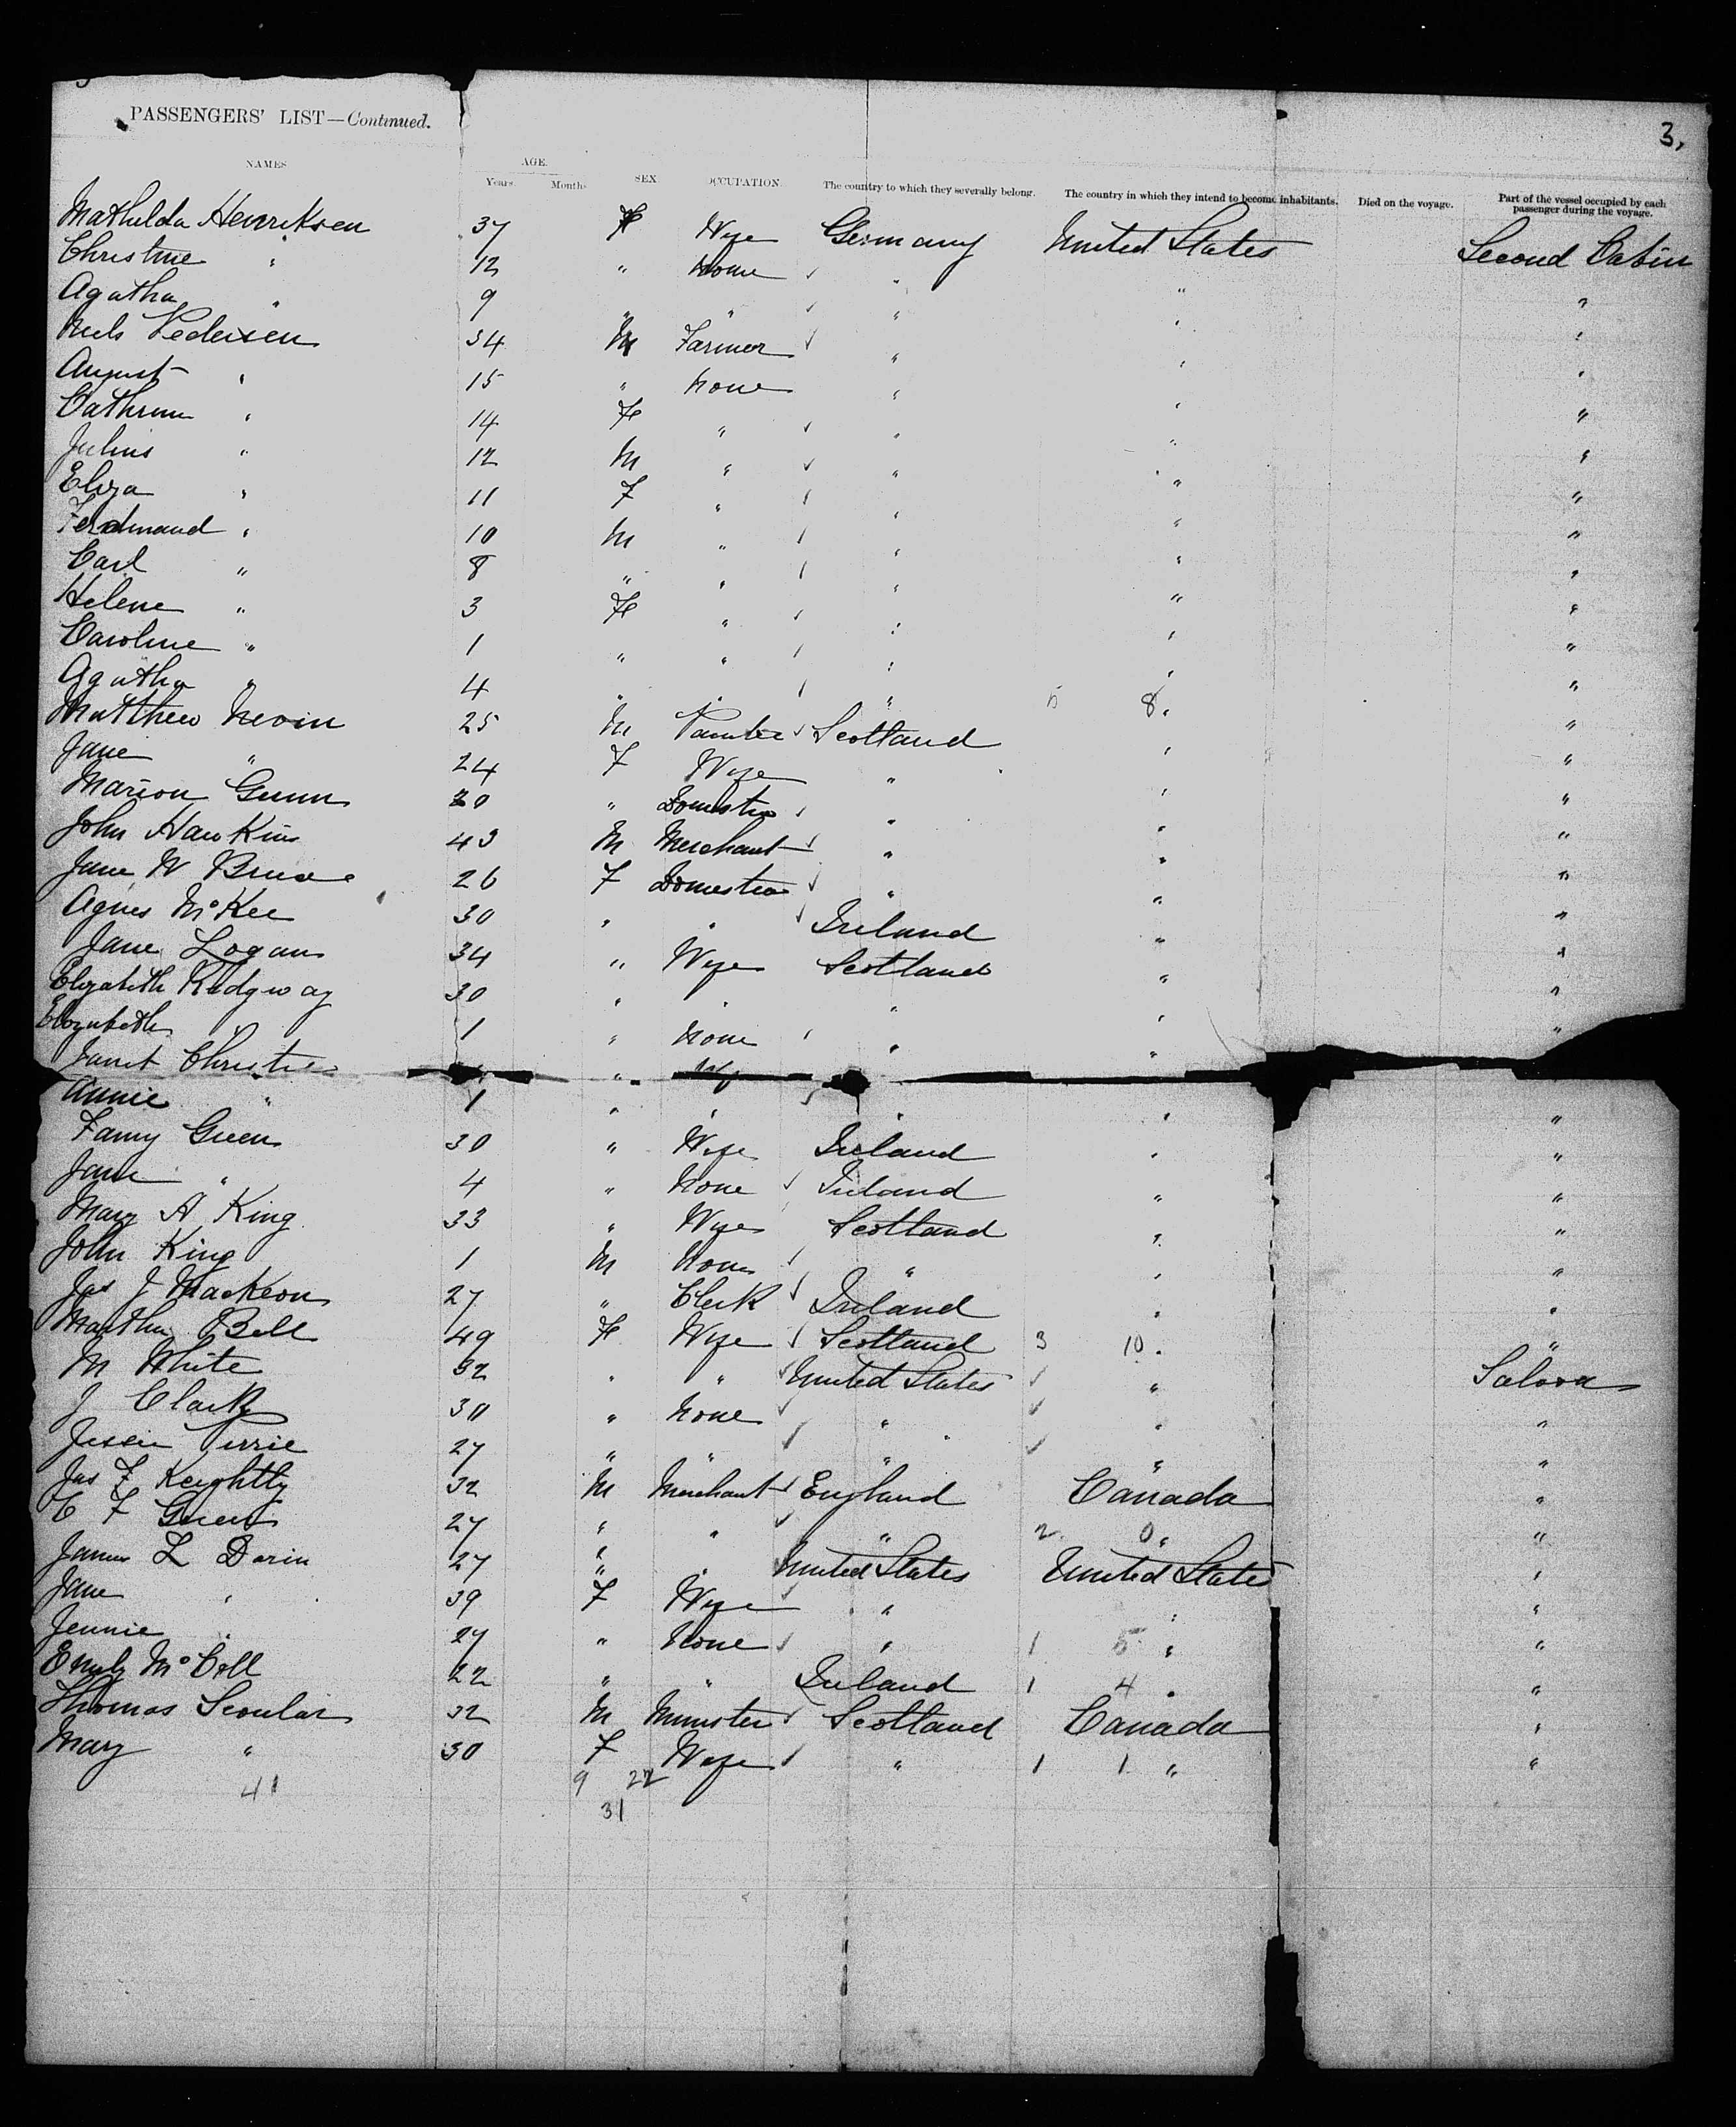 3,
PASSENGERS' LIST—Continued.
NAMES AGE. Years. Months SEX OCCUPATION. The country to which they severally belong. The country in which they intend to become inhabitants. Died on the voyage. Part of the vessel occupied by each passenger during the voyage.
Mathilda Henriksen 37 F Wife Germany United States Second Cabin
Christine " 12 " None " " "
Agatha " 9 " " " " "
Niels Pedersen 34 M Farmer " " "
August " 15 " None " " "
Cathrine " 14 F " " " "
Julius " 12 M " " " "
Eliza " 11 F " " " "
Ferdinand " 10 M " " " "
Carl " 8 " " " " "
Helene " 3 F " " " "
Caroline " 1 " " " " "
Agatha " 4 " " " 8 " "
Matthew Nevin 25 M Painter Scotland " "
Jane " 24 F Wife " " "
Marion Gunn 20 " Domestic " " "
John Hawkins 43 M Merchant " " "
Jane W Bruce 26 F Domestic " " "
Agnes McKee 30 " " Ireland " "
Jane Logan 34 " Wife Scotland " "
Elizabeth Ridgway 30 " " " " "
Elizabeth " 1 " None " " "
Janet Christie " Wife
Annie " 1 " " " " "
Fanny Green 30 " Wife Ireland " "
Jane " 4 " None Ireland " "
Mary A King 33 " Wife Scotland " "
John King 1 M None " " "
Jas J MacKeon 27 " Clerk Ireland " "
Martha Bell 49 F Wife Scotland 3 10 " "
M White 32 " " United States " Saloon
J Clark 30 " None " " "
Jessie Pirrie 27 " " " " "
Jas F Keightly 32 M Merchant England Canada "
C F Green 27 " " " 2 0 " "
James L Dorin 27 " " United States United States "
Jane " 39 F Wife " " "
Jennie " 27 " None " 1 5 " "
Emily McColl 22 " " Ireland 1 4 " "
Thomas Scoular 32 M Minister Scotland Canada "
Mary " 30 F Wife " 1 1 " "
41 9 22
31